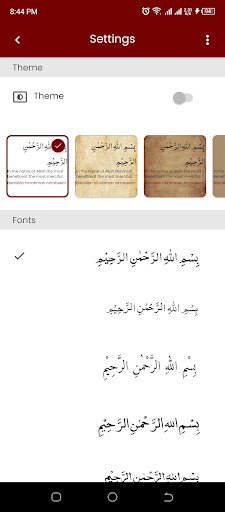 8:44 PM
Settings
Theme
Theme
بِسْمِ اللهِ الرَّحْمٰنِ
الرَّحِيْمِ
In the name of Allah the most
beneficent the most merciful.
Bismillah hirrahman nirraheem
بِسْمِ اللهِ الرَّحْمٰنِ
الرَّحِيْمِ
In the name of Allah the most
beneficent the most merciful.
Bismillah hirrahman nirraheem
بِسْمِ اللهِ الرَّحْمٰنِ
الرَّحِيْمِ
In the name of Allah the most
beneficent the most merciful.
Bismillah hirrahman nirraheem
Fonts
بِسْمِ اللهِ الرَّحْمٰنِ الرَّحِيْمِ
بِسْمِ اللهِ الرَّحْمٰنِ الرَّحِيْمِ
بِسْمِ اللهِ الرَّحْمٰنِ الرَّحِيْمِ
بِسْمِ اللهِ الرَّحْمٰنِ الرَّحِيْمِ
بِسْمِ اللهِ الرَّحْمٰنِ الرَّحِيْمِ